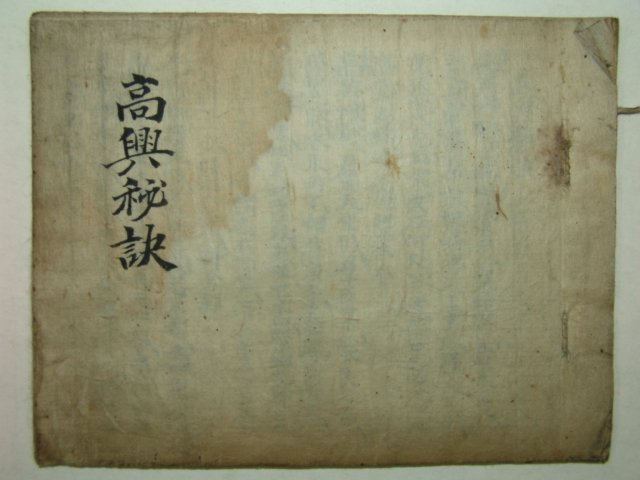 高興秘訣